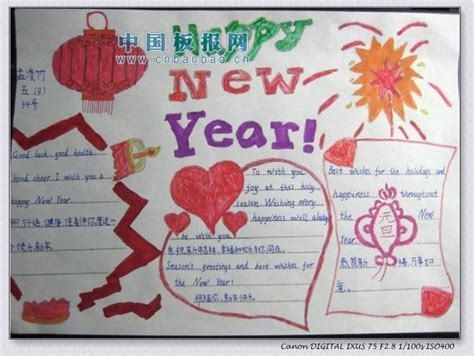 中国板报网
www.cnbanbao.cn
Happy
New
Year!
孟凌竹
五.(8)
34号
Good luck, good health,
good cheer. I wish you a
happy New Year.
To wish you
joy at this holy
season. Wishing every
happiness will always
be with you.
Season's greetings and best wishes for
the New Year!
Best wishes for the holidays and
happiness throughout
the New
Year.
元旦
恭贺新禧,万事如
意。
Canon DIGITAL IXUS 75 F2.8 1/100s ISO400